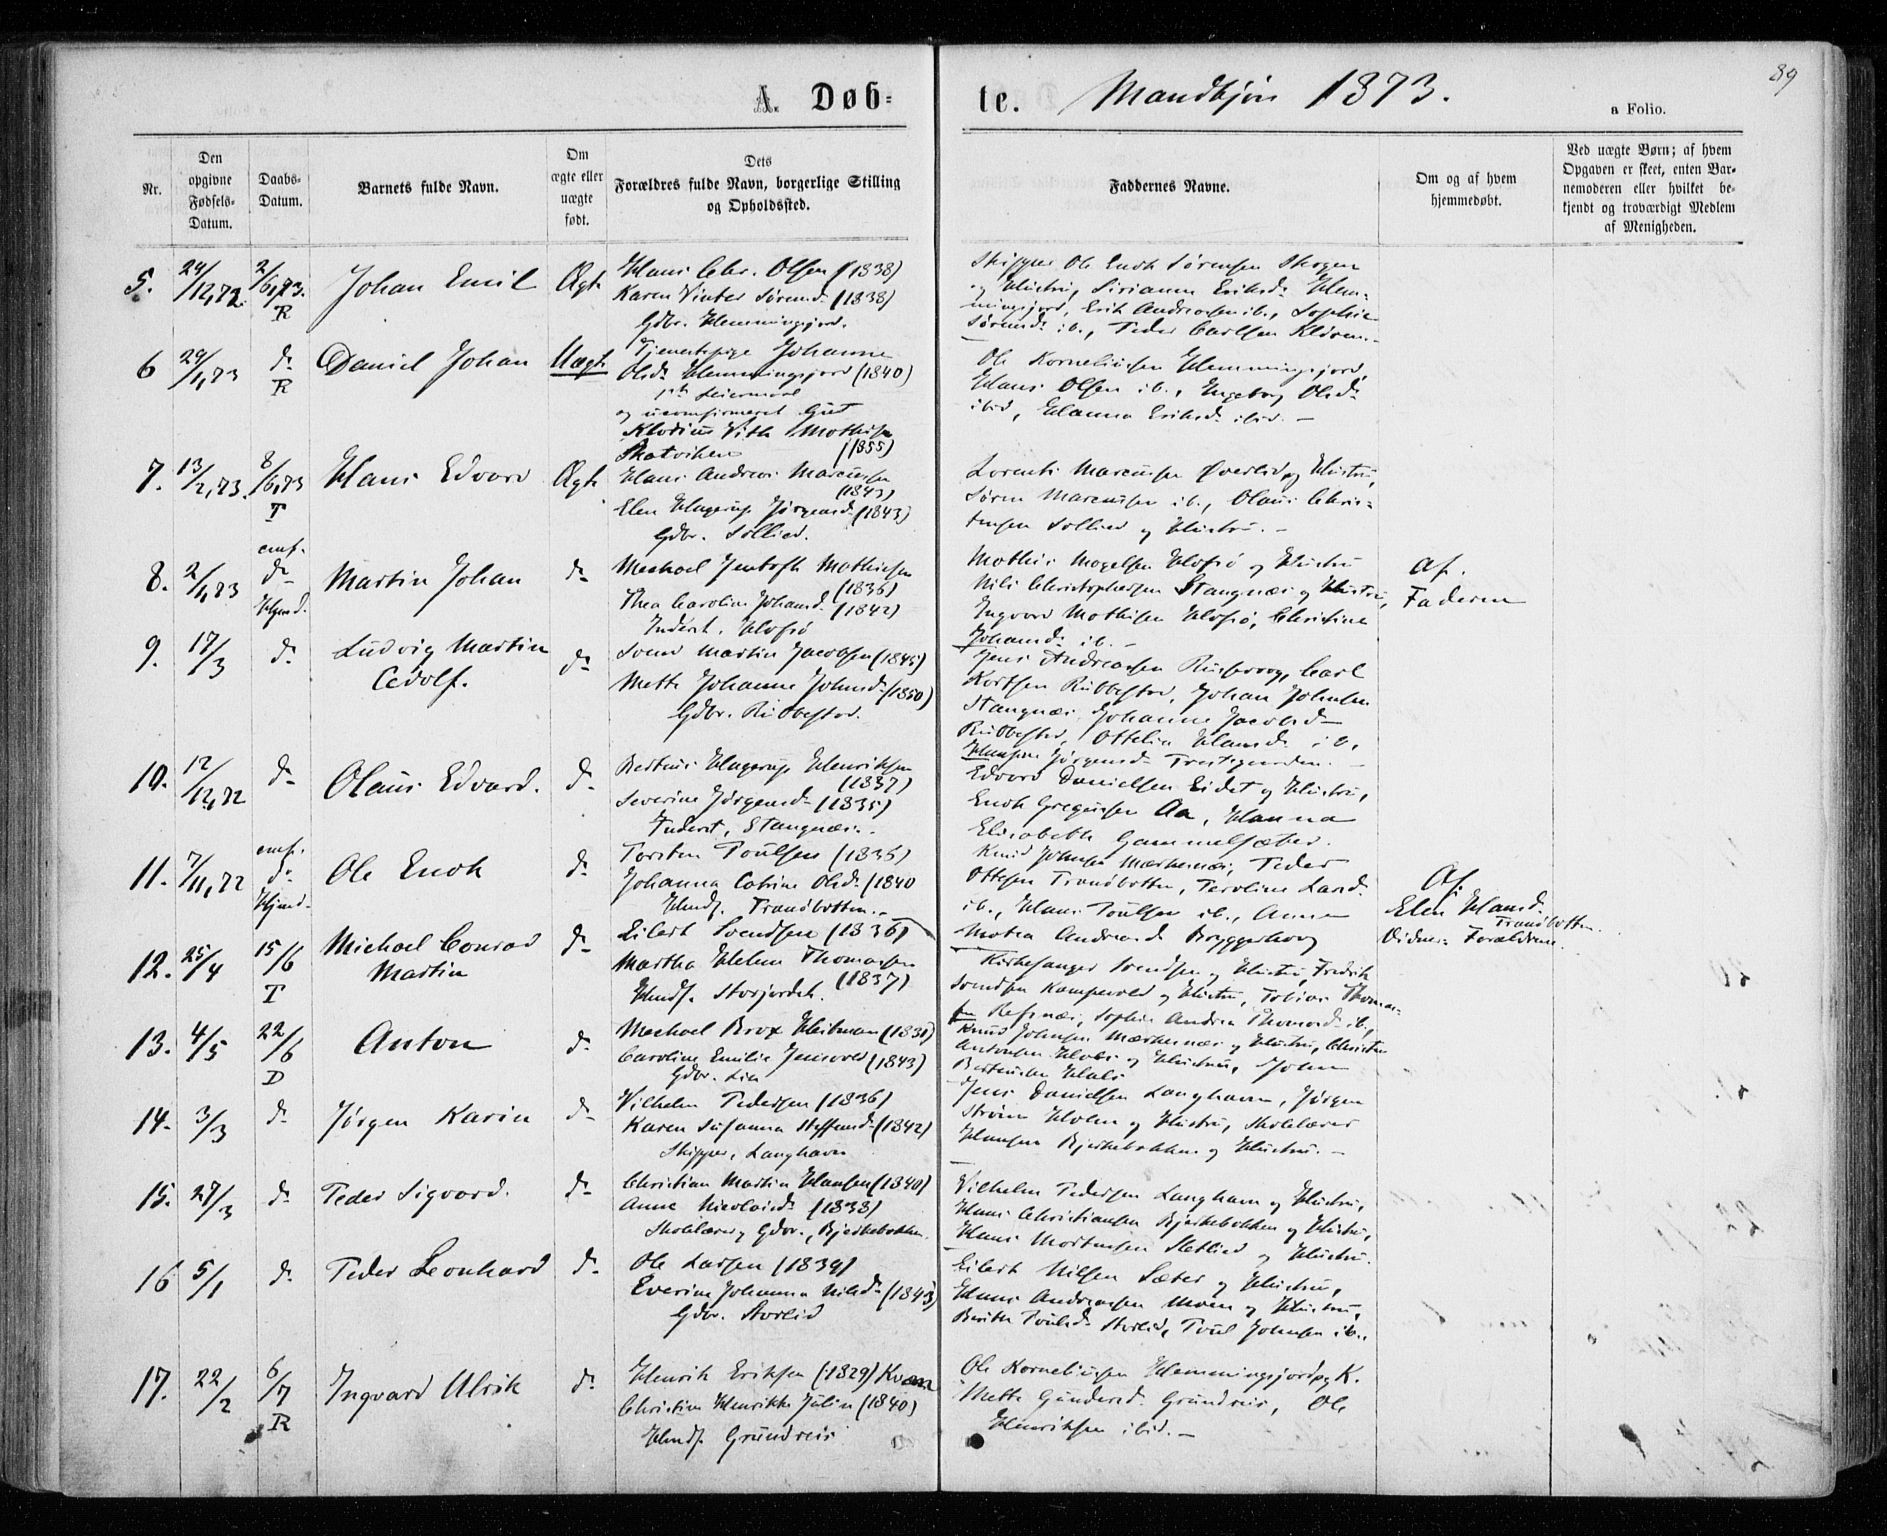 A. Døb-
te. Mandkjøn 1873.
89
a Folio.
Nr.
Den opgivne Fødsels-Datum.
Daabs-Datum.
Barnets fulde Navn.
Om ægte eller uægte født.
Dets Forældres fulde Navn, borgerlige Stilling og Opholdssted.
Faddernes Navne.
Om og af hvem hjemmedøbt.
Ved uægte Børn; af hvem Opgaven er skeet, enten Barnemoderen eller hvilket bekjendt og troværdigt Medlem af Menigheden.
5. 24/12,72. 2/6,73. R Johan Emil Ægte
Hans Chr. Olsen (1838)
Karen Vinter Sørensd. (1838)
Gdbr. Hemmingsjord.
Skipper Ole Enok Sørensen Skogen
og Hustru, Sirianna Eriksd. Hem-
mingsjord, Erik Andreasen ib., Sophie
Sørensd. ib., Peder Carlsen
6 29/1,73 do R Daniel Johan Uægte
Tjenestepige Johanne
Olsd. Hemmingsjord (1840)
1ste Leiermaal
og uconfirmeret Gut
Mathisen
(1855)
Ole Korneliusen Hemmingsjord,
Hans Olsen ib., Ingeborg Olsd.
ibid, Hanna Eriksd. ibid. -
7. 13/2,73. 8/6,73 T Hans Edvard Ægte
Hans Andreas Marcussen
(1843)
Elen Hagerup Jørgensd. (1843)
Gdbr. Sollied.
Lorents Marcussen Øverlid og Hustru,
Søren Marcussen ib., Olaus Chris-
tensen Sollied og Hustru. -
8. 2/1,73 conf. do Hjmd. Martin Johan do
Mechael Jentoft Mathisen
(1836)
Thea Caroline Johansd. (1842)
Inderst. Hofsø
Mathis Mogelsen Hofsø og Hustru
Nils Christophersen Stangnæs og Hustru,
Ingvard Mathisen Hofsø, Christine
Johansd. ib. -
Af.
Faderen
9. 17/3 do Ludvig Martin
Adolf. do
Martin Jacobsen (1845)
Mette Johanne Johnsd. (1850)
Gdbr. Rubbestad.
Jens Andreasen Russevog, Carl
Kortsen Rubbestad, Johan Johnsen
Stangnæs, Johanne Jacobsd.
Rubbestad, Ottelia Hansd. ib.
10. 12/12,72 do Olaus Edvard. do
Bertheus Hagerup Henriksen
(1837)
Severine Jørgensd. (1835)
Inderst, Stangnæs.
Jørgensd. Trestegjerden. -
Edvard Danielsen Eidet og Hustru,
Enok Gregusen Aa, Hanna
Elisabeth Gammelsæter.
11. 7/11,72 conf. do Hjmd. Ole Enok do
Torsten Poulsen (1836)
Johanna Catrine Olsd. (1840
Hmd. Tranøbotten.
Knud Johnsen Mærkenæs, Peder
Ottesen Tranøbotten, Peroline Larsd.
ib., Hans Poulsen ib., Anne
Motea Andreasd. Bryggerhoug
Af.
Elen Hansd.
Tranøbotten.
Vidner: Forældrene.
12. 25/4 15/6 T Michael Conrad
Martin do
Eilert Svendsen (1836)
Martha Helene Thomassen
(1837)
Hmd. Storjordet.
Kirkesanger Svendsen og Hustru, Fredrik
Svendsen Kampevold og Hustru, Tobias Thomas-
sen Refsnæs, Sophie Andrea Thomasd. ib.,
13. 4/5 22/6 D Anton do
Mechael Brox Heitman (1831)
Caroline Emilie Jensvold (1843)
Gdbr. Lia
Knud Johnsen Mærkenæs og Hustru, Christen
Antonsen Hals og Hustru, John
Bertheusen Hals
14. 3/3 do Jørgen Karin do
Vilhelm Pedersen (1836)
Karen Susanna Steffensd. (1842)
Skipper, Langhavn
Jens Danielsen Langhavn, Jørgen
Strøm Holm og Hustru, Skolelærer
Hansen Bjerkebakken og Hustru. -
15. 27/3 do Peder Sigvard. do
Christian Martin Hansen (1840)
Anne Nicolaisd. (1838)
Skolelærer og Gdbr., Bjerkebakken.
Vilhelm Pedersen Langhavn og Hustru,
Hans Christiansen Bjerkebakken og Hustru,
Hans Mortensen Sletlied og Hustru.
16 5/1 do Peder Leonhard do
Ole Larsen (1839)
Everine Johanna Nilsd. (1843)
Gdbr. Storlid
Eilert Nilsen Sæter og Hustru,
Hans Andreasen Moen og Hustru,
Berith Poulsd. Storlid, Poul Johnsen ib.
17. 22/2 6/7 R Ingvard Ulrik do
Henrik Eriksen (1829) Kvæn
Christine Henrikke Julin (1840)
Hmd. Grundreis
Ole Korneliusen Hemmingsjord og K.
Mette Gundersd. Grundreis, Ole
Henriksen ibid. -